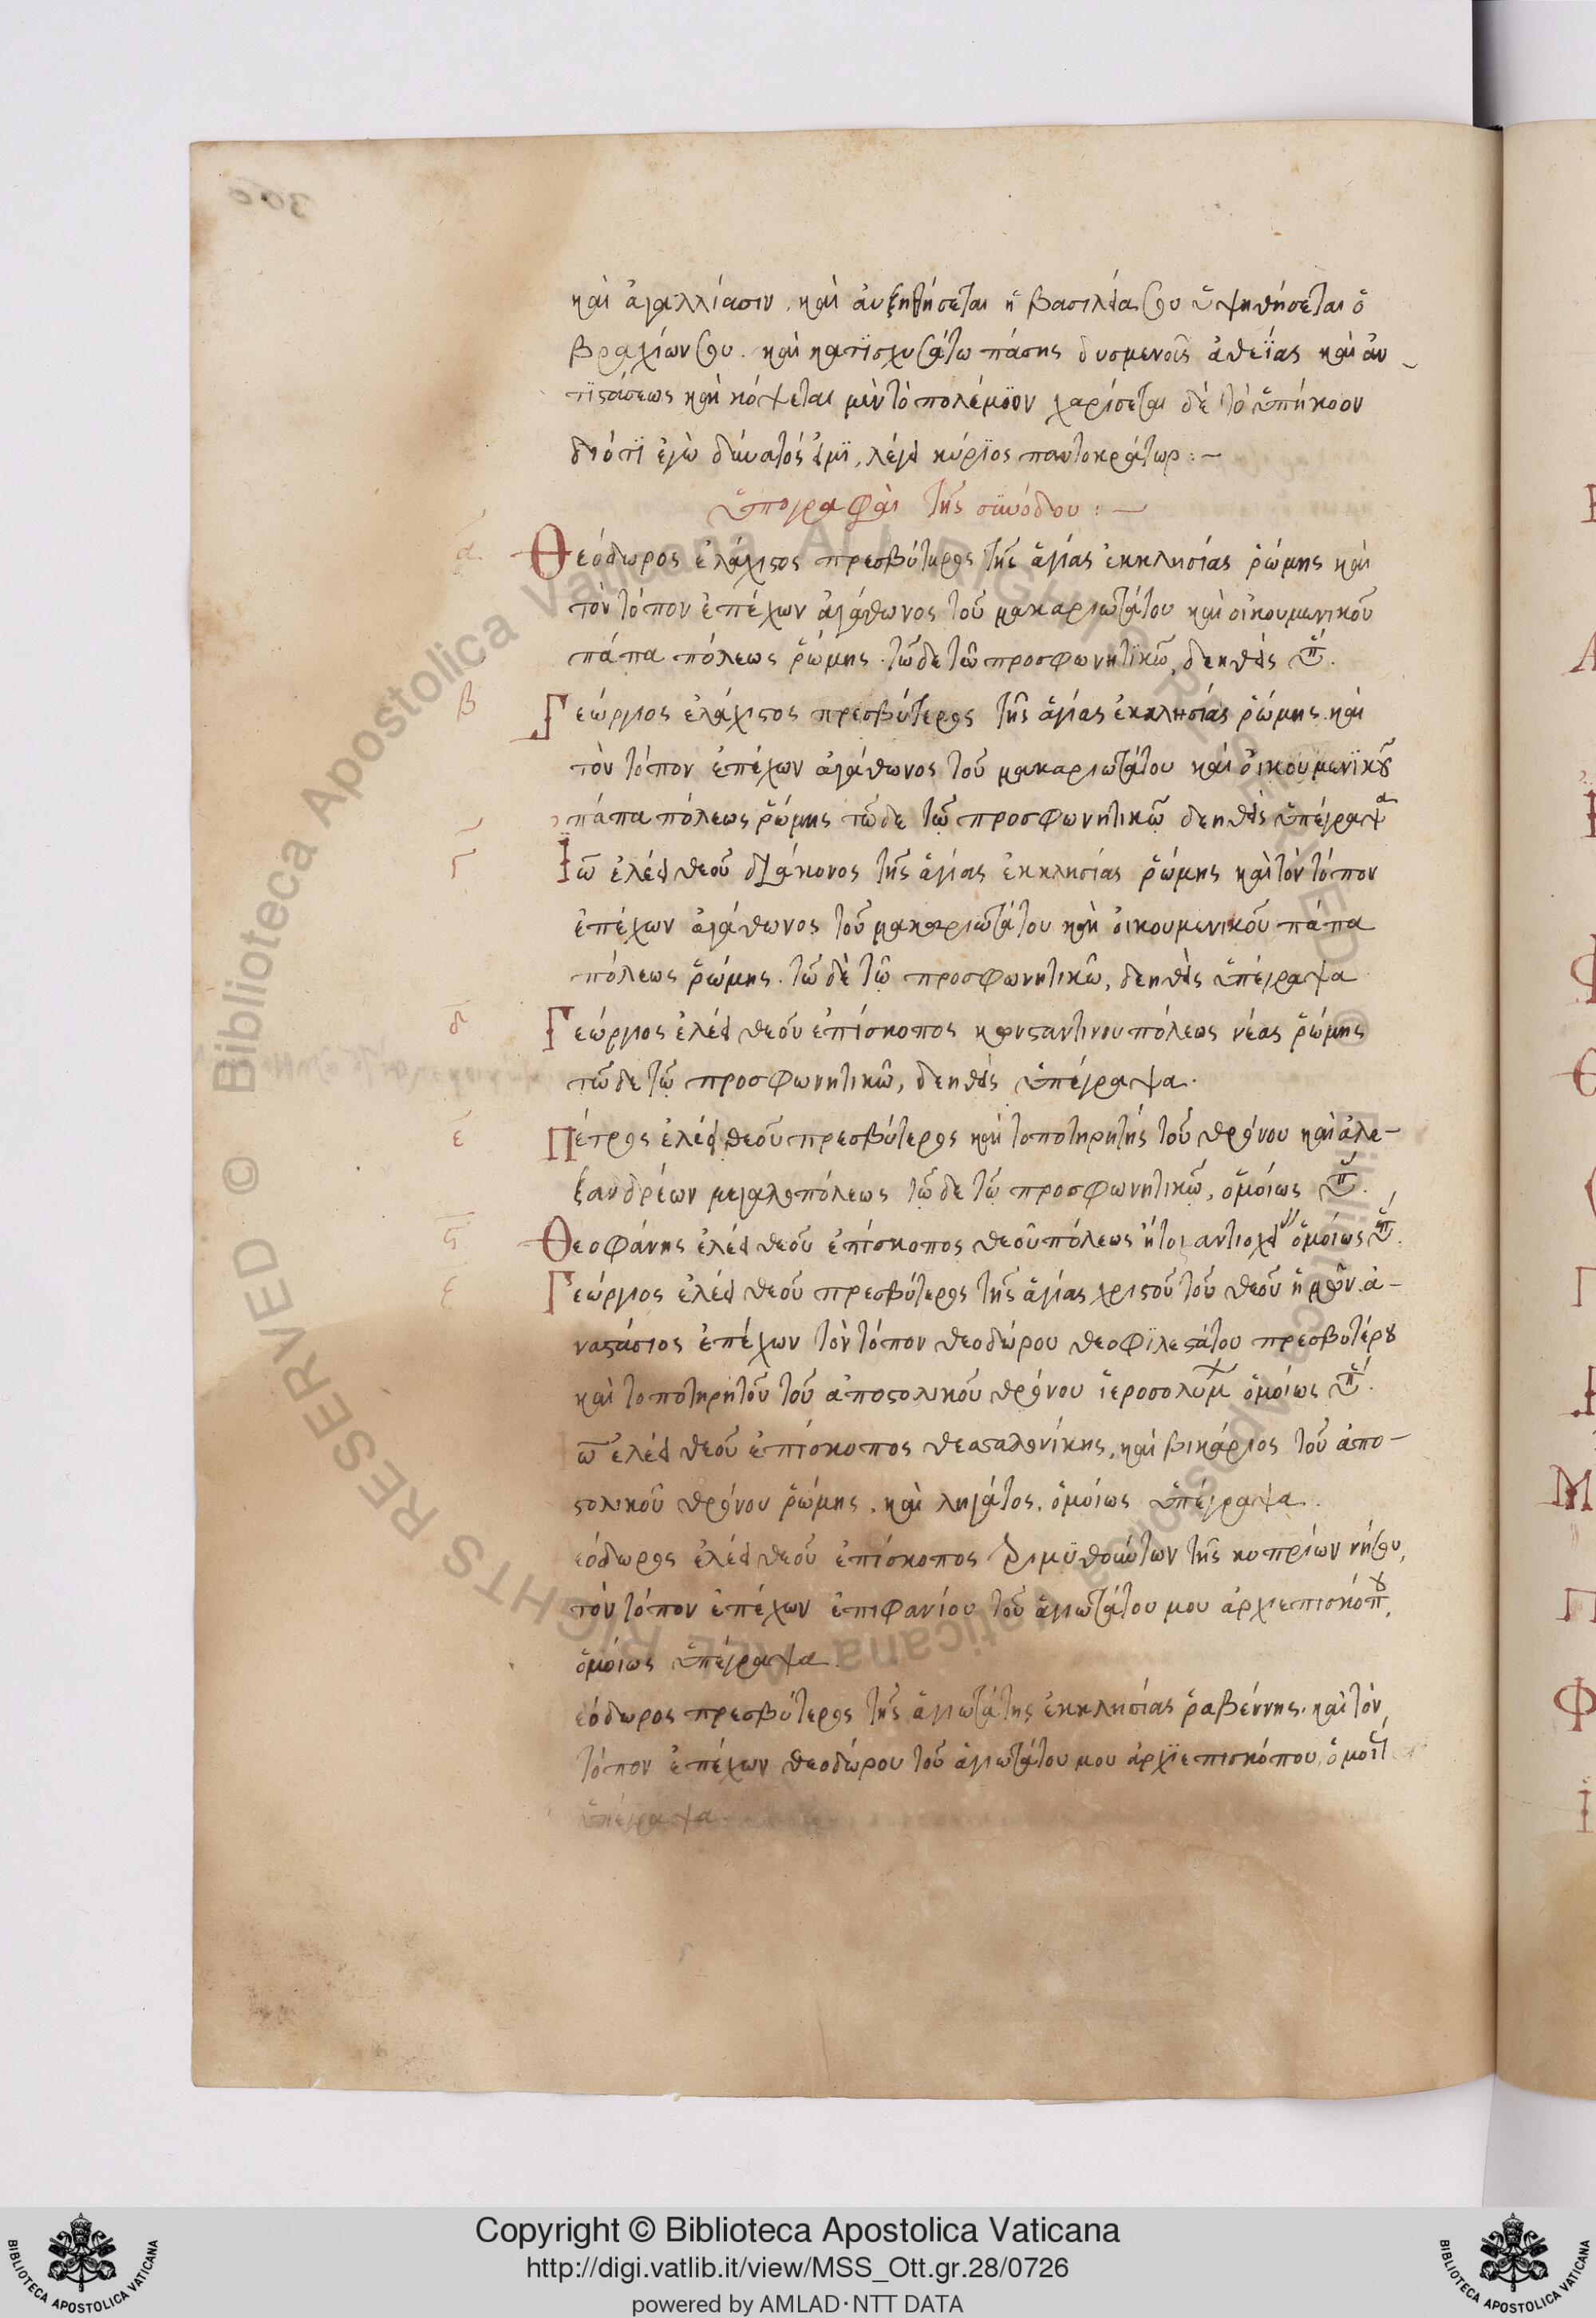 καὶ ἀγαλλίασιν, καὶ ἀυξηθήσεται ἡ βασιλείας σου ὑψηθήσεται ὁ
βραχίων σου. καὶ κατϊσχυσάτω πάσης δυσμενοῦς ἀθεΐας καὶ ἀν
τϊστάσεως καὶ κόψεται μὲν τὸ πολέμϊον χαρίσεται δὲ τὸ ὑπήκοον
διότϊ ἐγὼ δύνατός εἰμϊ, λέγει κύρϊος παντοκράτωρ :—
ὑπογραφαὶ τῆς συνόδου : —
α
Θεόδωρος ἐλάχιστος πρεσβύτερος τῆς ἁγίας ἐκκλησίας ῥώμης καὶ
τὸν τόπον ἐπέχων ἀγάθωνος τοῦ μακαριωτάτου καὶ οἰκουμενικοῦ
πάπα πόλεως ῥώμης. τῶδε τῶ προσφωνητϊκῶ, δεηθεὶς ὑπ.
β
Γεώργιος ἐλάχιστος πρεσβύτερος τῆς ἁγίας ἐκκλησίας ῥώμης. καὶ
τὸν τόπον ἐπέχων ἀγάθωνος τοῦ μακαριωτάτου καὶ ὀικουμενϊκοῦ
πάπα πόλεως ῥώμης τῶδε τῶ προσφωνητικῶ δεηθεὶς ὑπέγραψα
γ
Ἰω ἐλέει θεοῦ διάκονος τῆς ἁγίας ἐκκλησίας ῥώμης καὶ τὸν τόπον
ἐπέχων ἀγάθωνος τοῦ μακαριωτάτου καὶ ὀικουμενικοῦ πάπα
πόλεως ῥώμης. τῶ δὲ τῶ προσφωνητικῶ, δεηθεὶς ὑπέγραψα
δ
Γεώργιος ἐλέει θεοῦ ἐπίσκοπος κονσταντινουπόλεως νέας ῥώμης
τῶδε τῶ προσφωνητικῶ, δεηθεὶς ὑπέγραψα.
ε
Πέτρος ἐλέει θεοῦ πρεσβύτερος καὶ τοποτηρητής τοῦ θρόνου καὶ ἀλε-
ξανδρέων μεγαλοπόλεως τῶδε τῶ προσφωνητικῶ, ὁμόίως ὑπ.
ς
Θεοφάνης ἐλέει θεοῦ ἐπίσκοπος θεοῦπόλεως ἤτοι αντιοχει ὁμόίως ὑπ.
Γεώργιος ἐλέει θεοῦ πρεσβύτερος τῆς ἁγίας χριστοῦ τοῦ θεοῦ ἡμῶν ἀ-
ναστάσιος ἐπέχων τὸν τόπον θεοδώρου θεοφϊλεστάτου πρεσβυτέρου
καὶ τοποτηρητοῦ τοῦ ἀποστολικοῦ θρόνου ἱεροσολύμ ὁμόίως ὑπ.
ω ἐλέει θεοῦ ἐπίσκοπος θεσταλονίκης, καὶ βικάριος τοῦ ἀπο-
στολικοῦ θρόνου ῥώμης. καὶ ληγάτος. ὁμόίως ὑπέγραψα.
εόδωρος ἐλέει θεοῦ ἐπίσκοπος τῆς κυπρίων νήσου,
τὸν τόπον ἐπέχων ἐπιφανίου τοῦ ἁγιωτάτου μου ἀρχιεπισκόπου,
ὁμόίως ὑπέγραψα.
εόδωρος πρεσβύτερος τῆς ἁγιωτάτης ἐκκλησίας ῥαβέννης. καὶ τὸν
τόπον ἐπέχων θεοδώρου τοῦ ἁγιωτάτου μου ἀρχϊεπισκόπου, ὁμοί
ὑπέγραψα
Copyright © Biblioteca Apostolica Vaticana
http://digi.vatlib.it/view/MSS_Ott.gr.28/0726
powered by AMLAD·NTT DATA
BIBLIOTECA APOSTOLICA VATICANA
BIBLIOTECA APOSTOLICA VATICANA